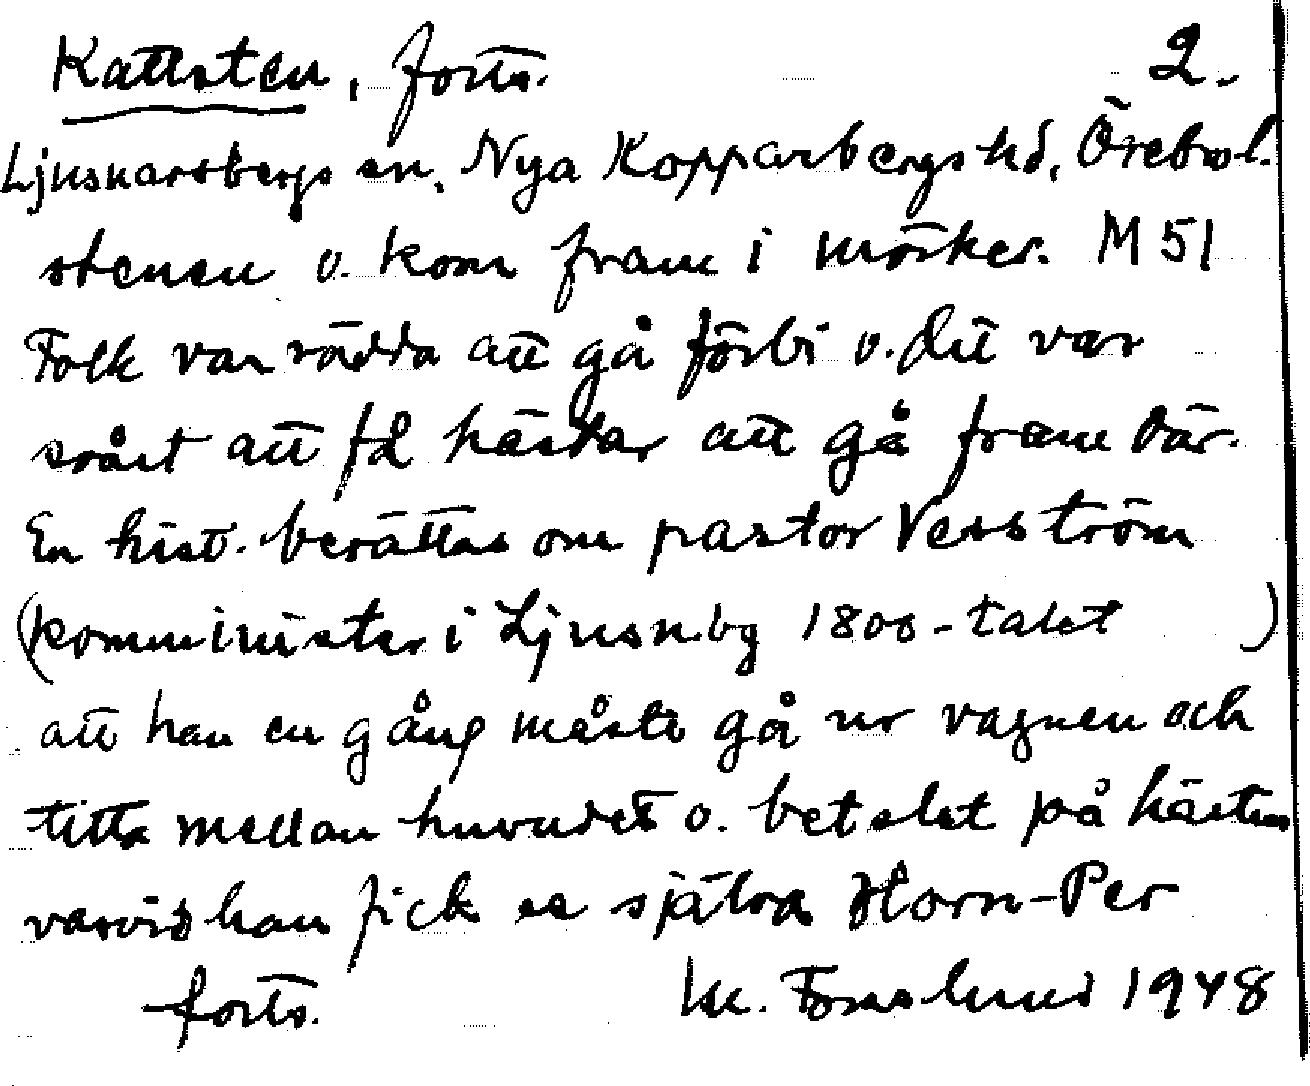 Kattsten, forts. 2.
Ljusnarsbergs sn, Nya Kopparbergs hd, Örebro l.
stenen o. kom fram i mörker. M 51
Folk var rädda att gå förbi o. det var
svårt att få hästar att gå fram där.
En hist. berättas om pastor Vesström
(komminister i Ljusn.bg 1800-talet )
att han en gång måste gå ur vagnen och
titta mellan huvudet o. betslet på hästen
varvid han fick se själva Horn-Per
forts. 1948